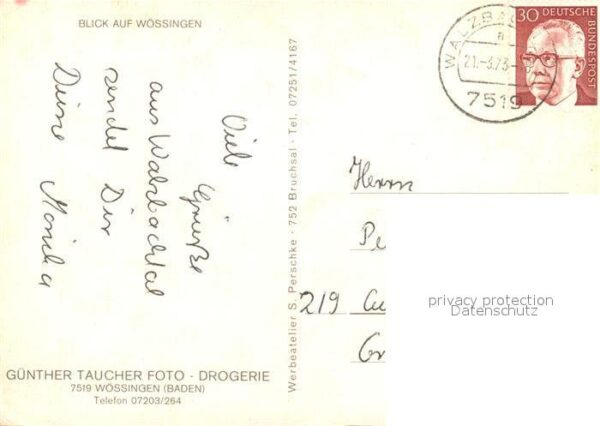 BLICK AUF WÖSSINGEN
Viele
Grüße
aus Walzbachtal
sendet Dir
Deine Monika
GÜNTHER TAUCHER FOTO - DROGERIE
7519 WÖSSINGEN (BADEN)
Telefon 07203/264
Werbeatelier S. Perschke - 752 Bruchsal - Tel. 07251/4167
21.-3.73
7519
30 DEUTSCHE
BUNDESPOST
Herrn
219
privacy protection
Datenschutz